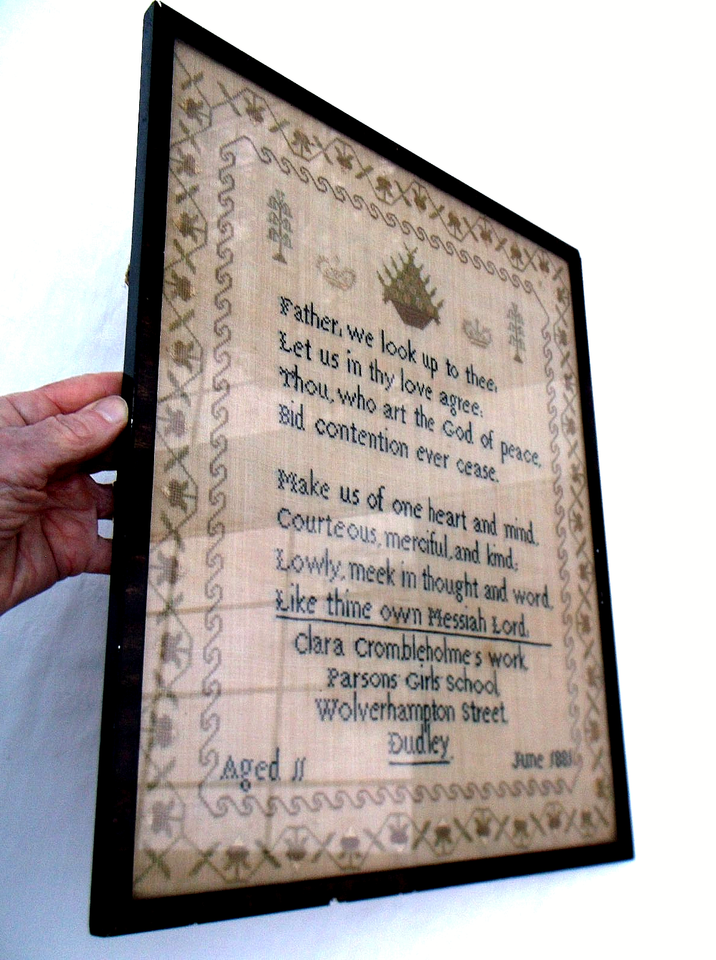 Father, we look up to thee,
Let us in thy love agree,
Thou, who art the God of peace,
Bid contention ever cease.
Make us of one heart and mind,
Courteous, merciful, and kind,
Lowly, meek in thought and word,
Like thine own Messiah Lord.
Clara Crombleholme's work
Parsons Girls School
Wolverhampton Street
Dudley
Aged 11 June 1881